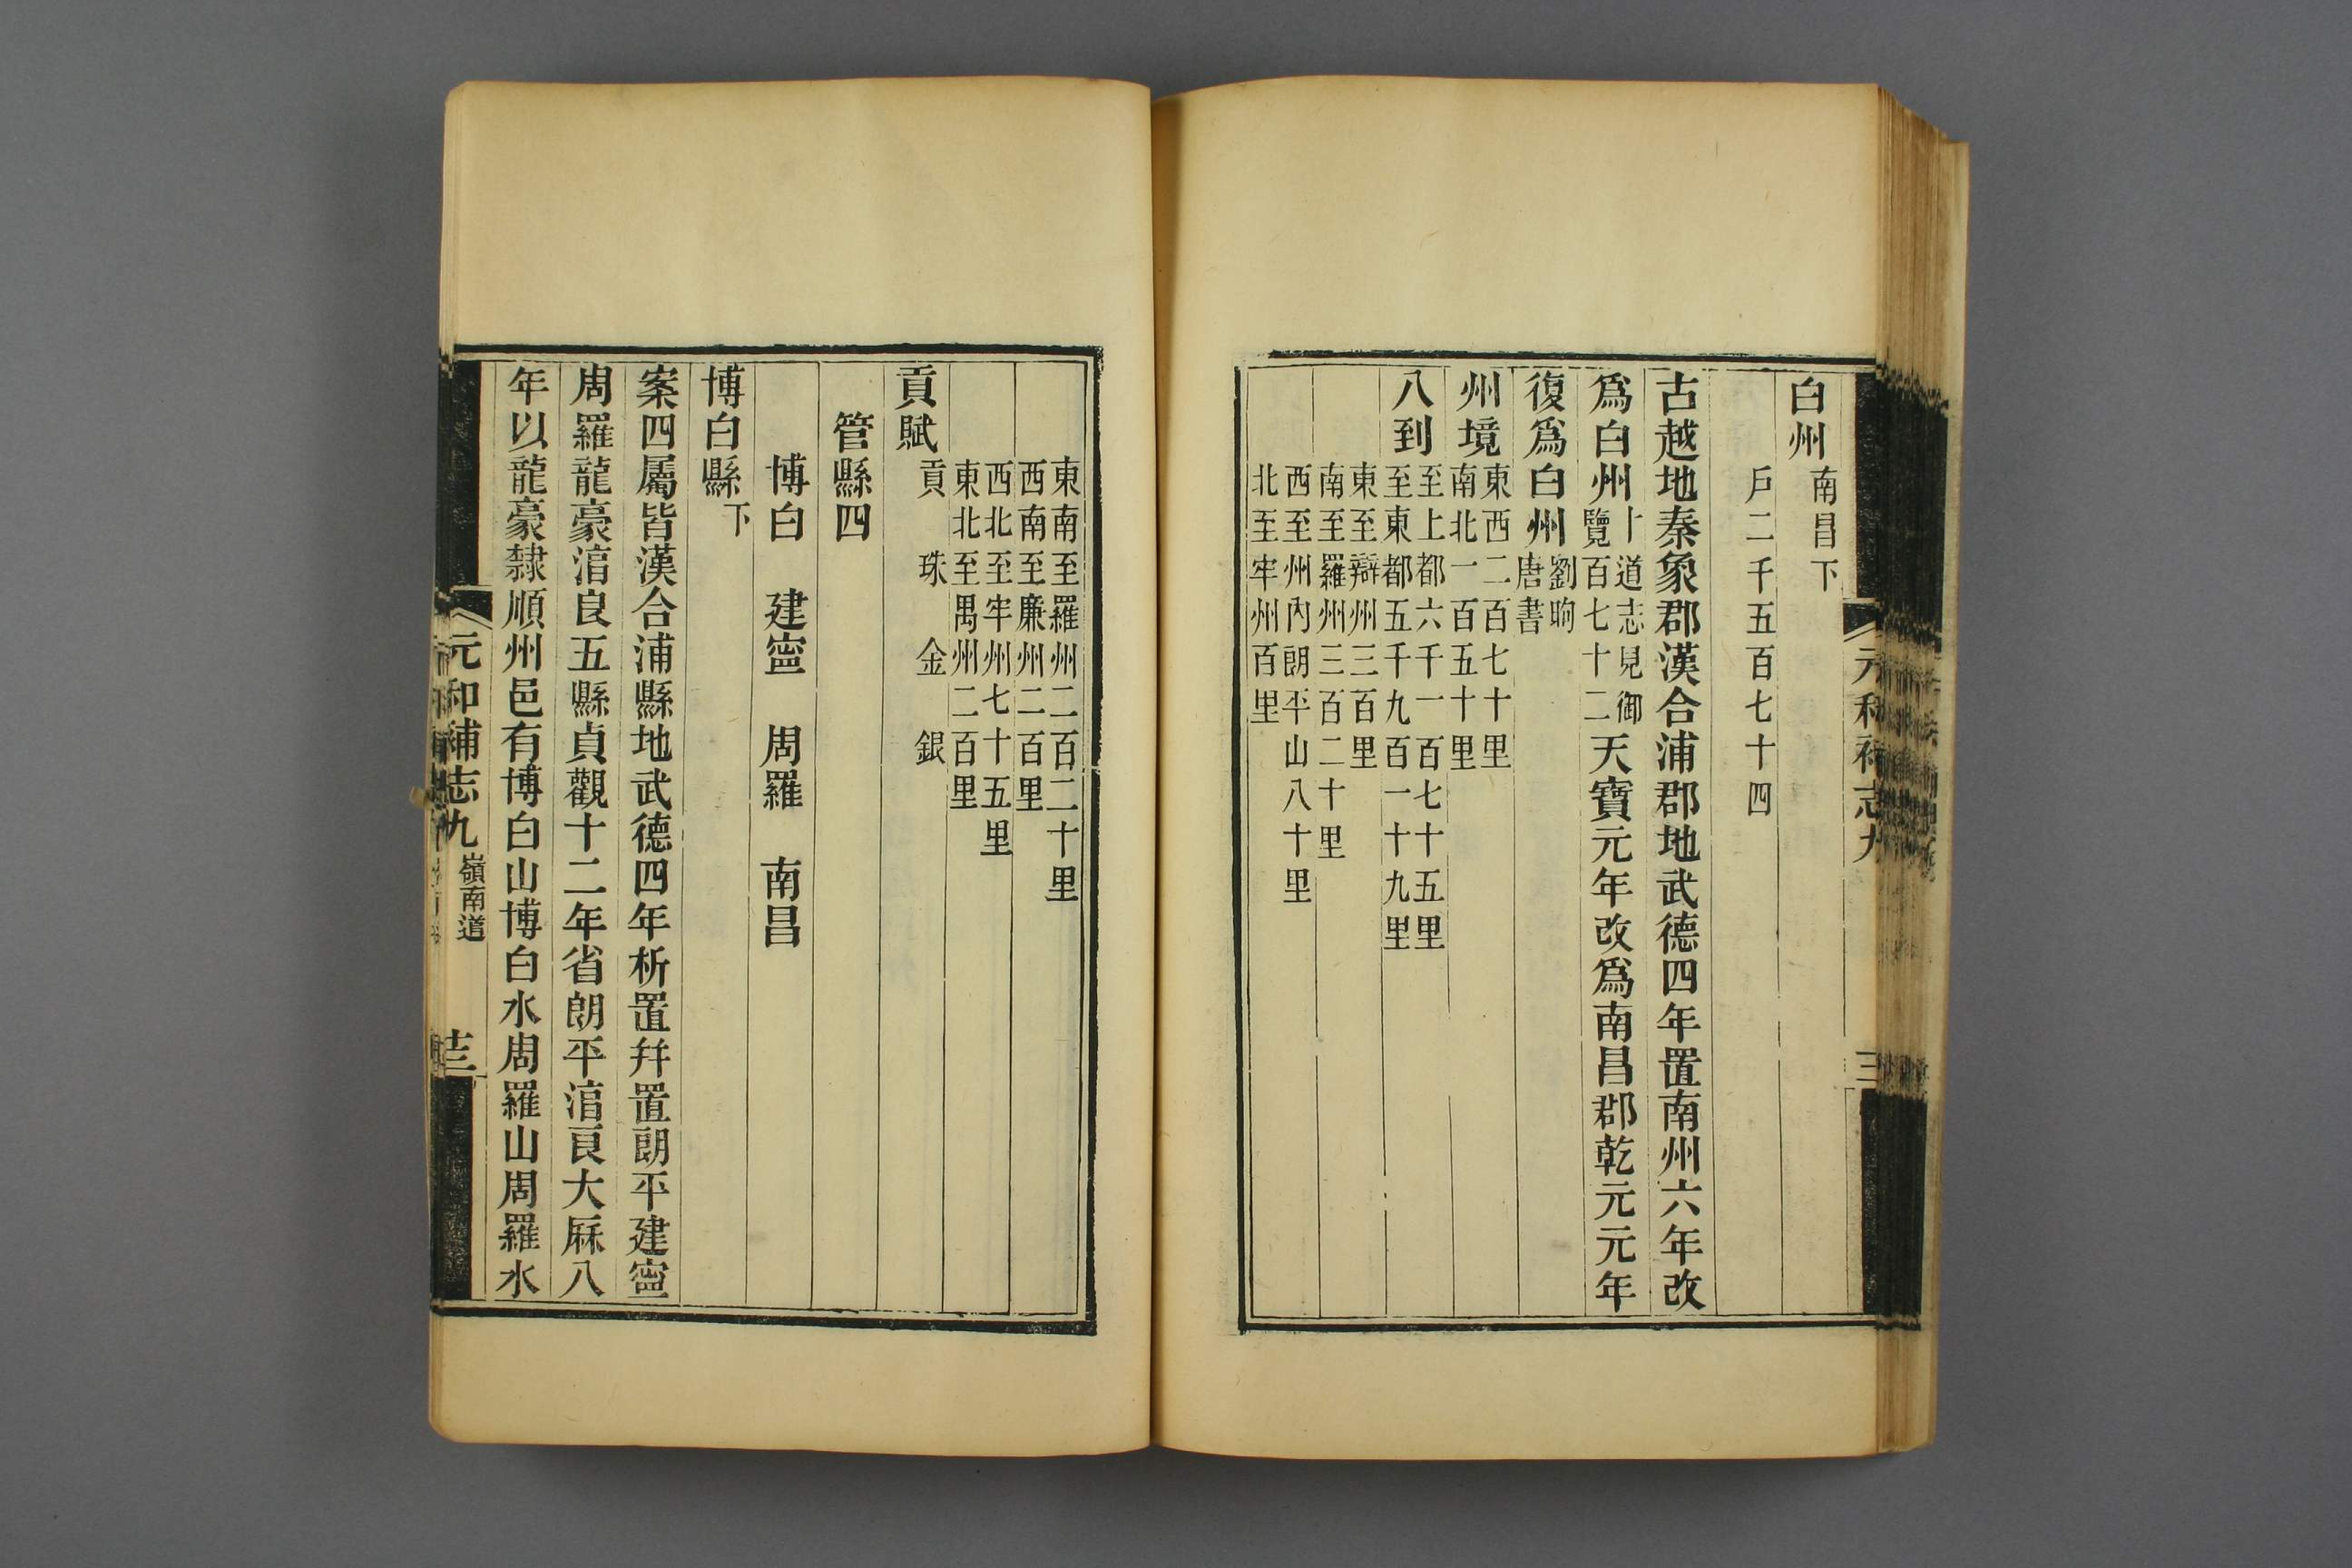 白州 南昌下
戶二千五百七十四
古越地秦象郡漢合浦郡地武德四年置南州六年改
爲白州 十道志見御
覽百七十二 天寶元年改爲南昌郡乾元元年
復爲白州 劉昫
唐書
州境 東西二百七十里
南北一百五十里
八到 至上都六千一百七十五里
至東都五千九百一十九里
東至辯州三百里
南至羅州三百二十里
西至州內朗平山八十里
北至牢州百里
東南至羅州二百二十里
西南至廉州二百里
西北至牢州七十五里
東北至禺州二百里
貢賦 貢 珠 金 銀
管縣四
博白 建寧 周羅 南昌
博白縣 下
案四屬皆漢合浦縣地武德四年析置幷置朗平建寧
周羅龍豪淯良五縣貞觀十二年省朗平淯良大厤八
年以龍豪隸順州邑有博白山博白水周羅山周羅水
元和補志九 嶺南道